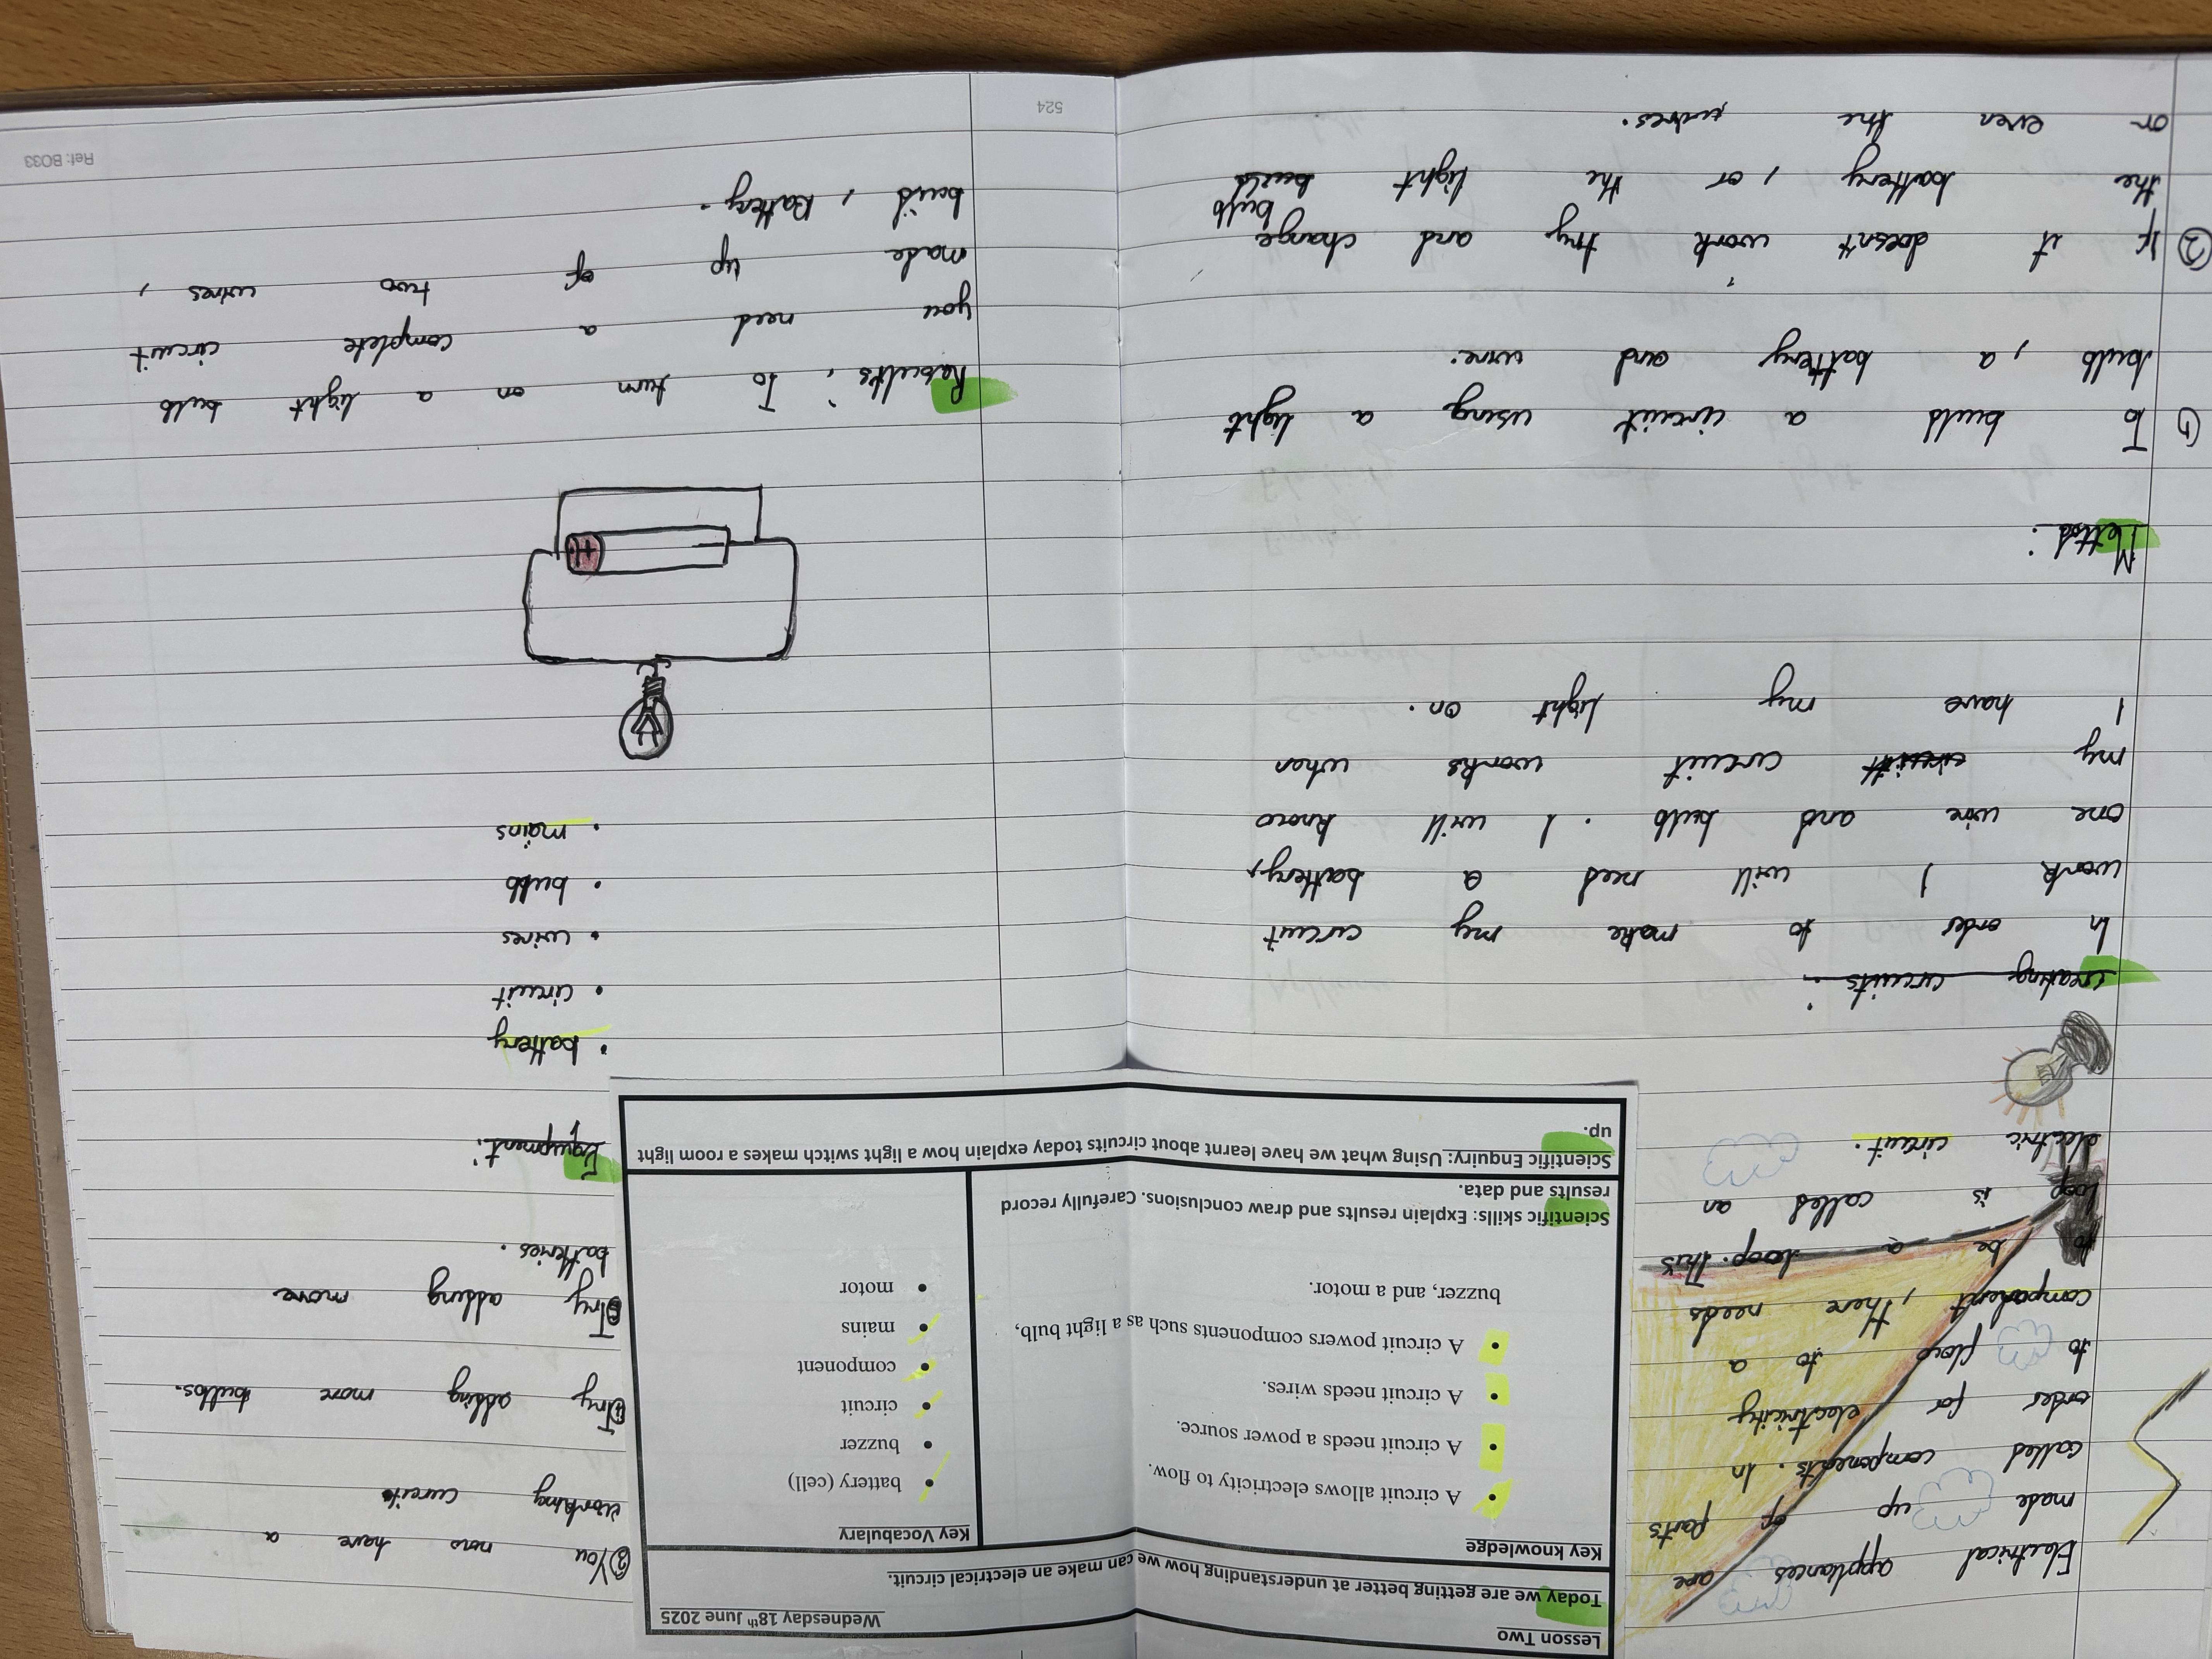 Electrical appliances are
made up of parts
called components. In
order for electricity
to flow to a
component, there needs
to be a loop. This
loop is called an
electric circuit.
Lesson Two
Wednesday 18th June 2025
Today we are getting better at understanding how we can make an electrical circuit.
Key knowledge
• A circuit allows electricity to flow.
• A circuit needs a power source.
• A circuit needs wires.
• A circuit powers components such as a light bulb,
buzzer, and a motor.
Scientific skills: Explain results and draw conclusions. Carefully record
results and data.
Key Vocabulary
• battery (cell)
• buzzer
• circuit
• component
• mains
• motor
Scientific Enquiry: Using what we have learnt about circuits today explain how a light switch makes a room light
up.
creating circuits:
In order to make my circuit
work I will need a battery,
one wire and bulb. I will know
my circuitt circuit works when
I have my light on.
Mettod:
① To buld a circuit using a light
bulb, a battery and wire.
② If it doesn't work try and change
bulb
the battery, or the light build
or even the wires.
③ You now have a
working cureit
④ Try adding more bulbs.
⑤ Try adding more
batteries.
Equipment:
• battery
• circuit
• wires
• bulb
• mains
+
Rasults: To turn on a light bulb
you need a complete circuit
made up of two wires,
buid, Battery.
524
Ref: BO33